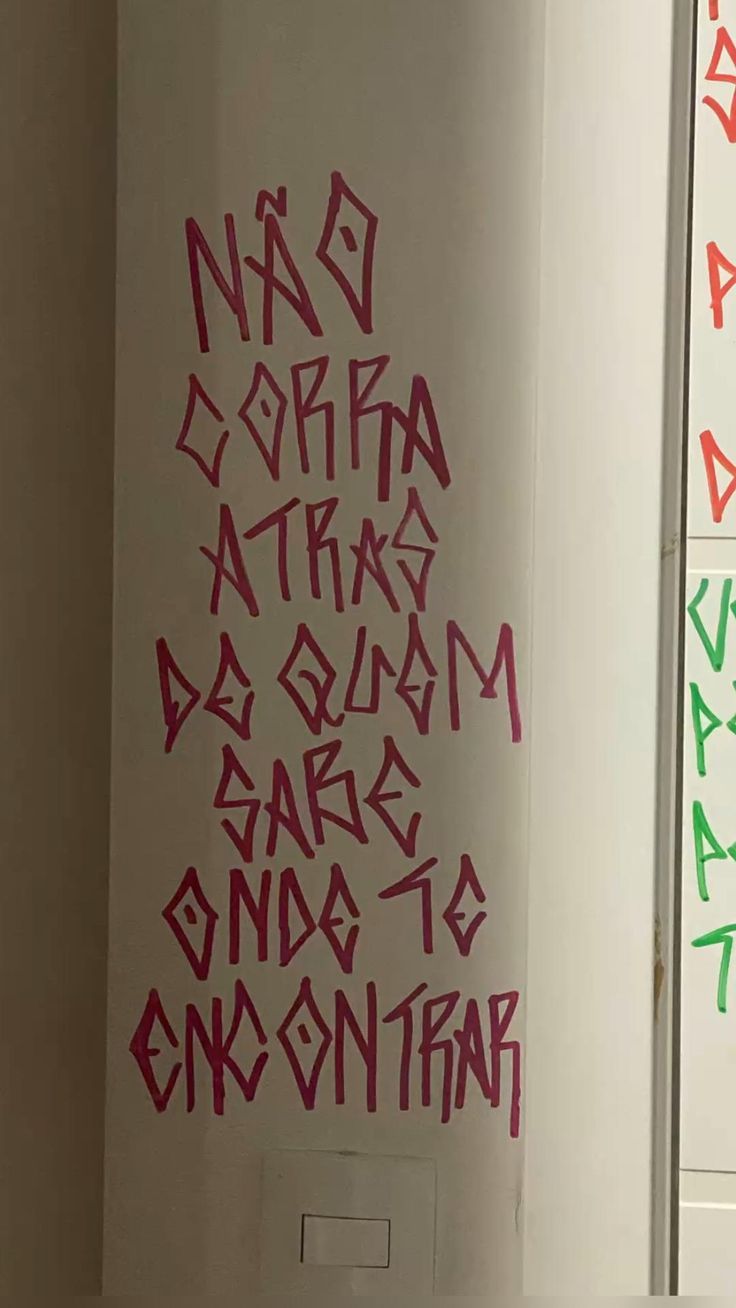 NÃO
CORRA
ATRAS
DE QUEM
SABE
ONDE TE
ENCONTRAR